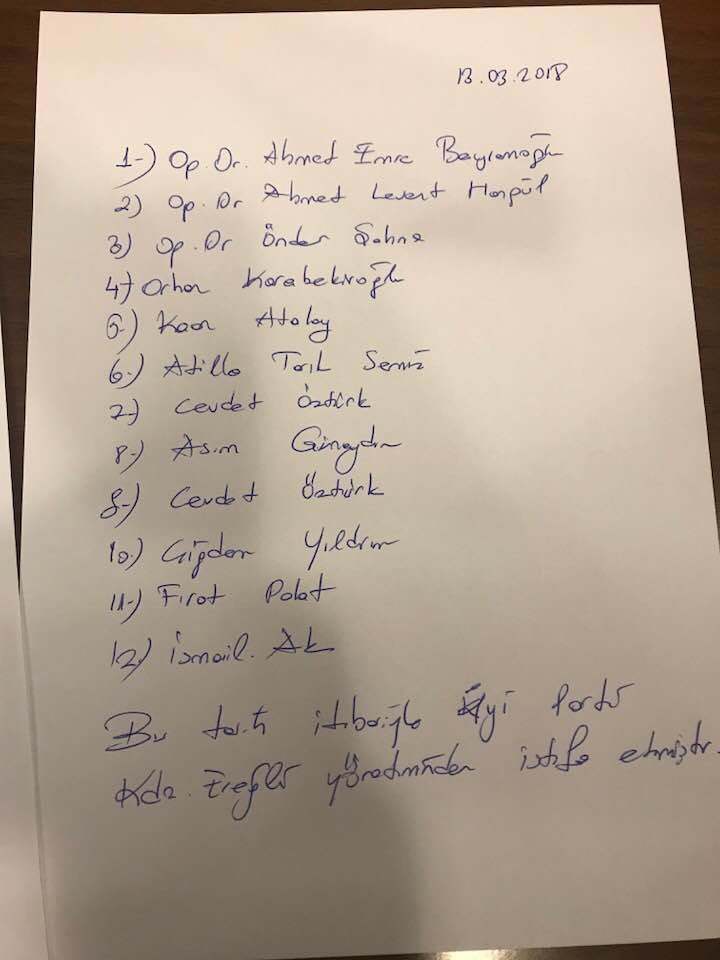 13.03.2018
1-) Op. Dr. Ahmet Emre Bayramoğlu
2) Op. Dr Ahmed Levent Harpul
3) Op. Dr Önder Şahne
4-) Orhan Karabekiroğlu
5-) Kaan Atalay
6-) Atilla Tarık Semiz
7-) Cevdet Öztürk
8-) Asım Günaydın
8-) Cevdet Öztürk
10-) Çiğdem Yıldırım
11-) Fırat Polat
12) İsmail. Ak
Bu tarih itibariyle İyi Parti
Kdz. Ereğli yönetiminden istifa etmiştir.